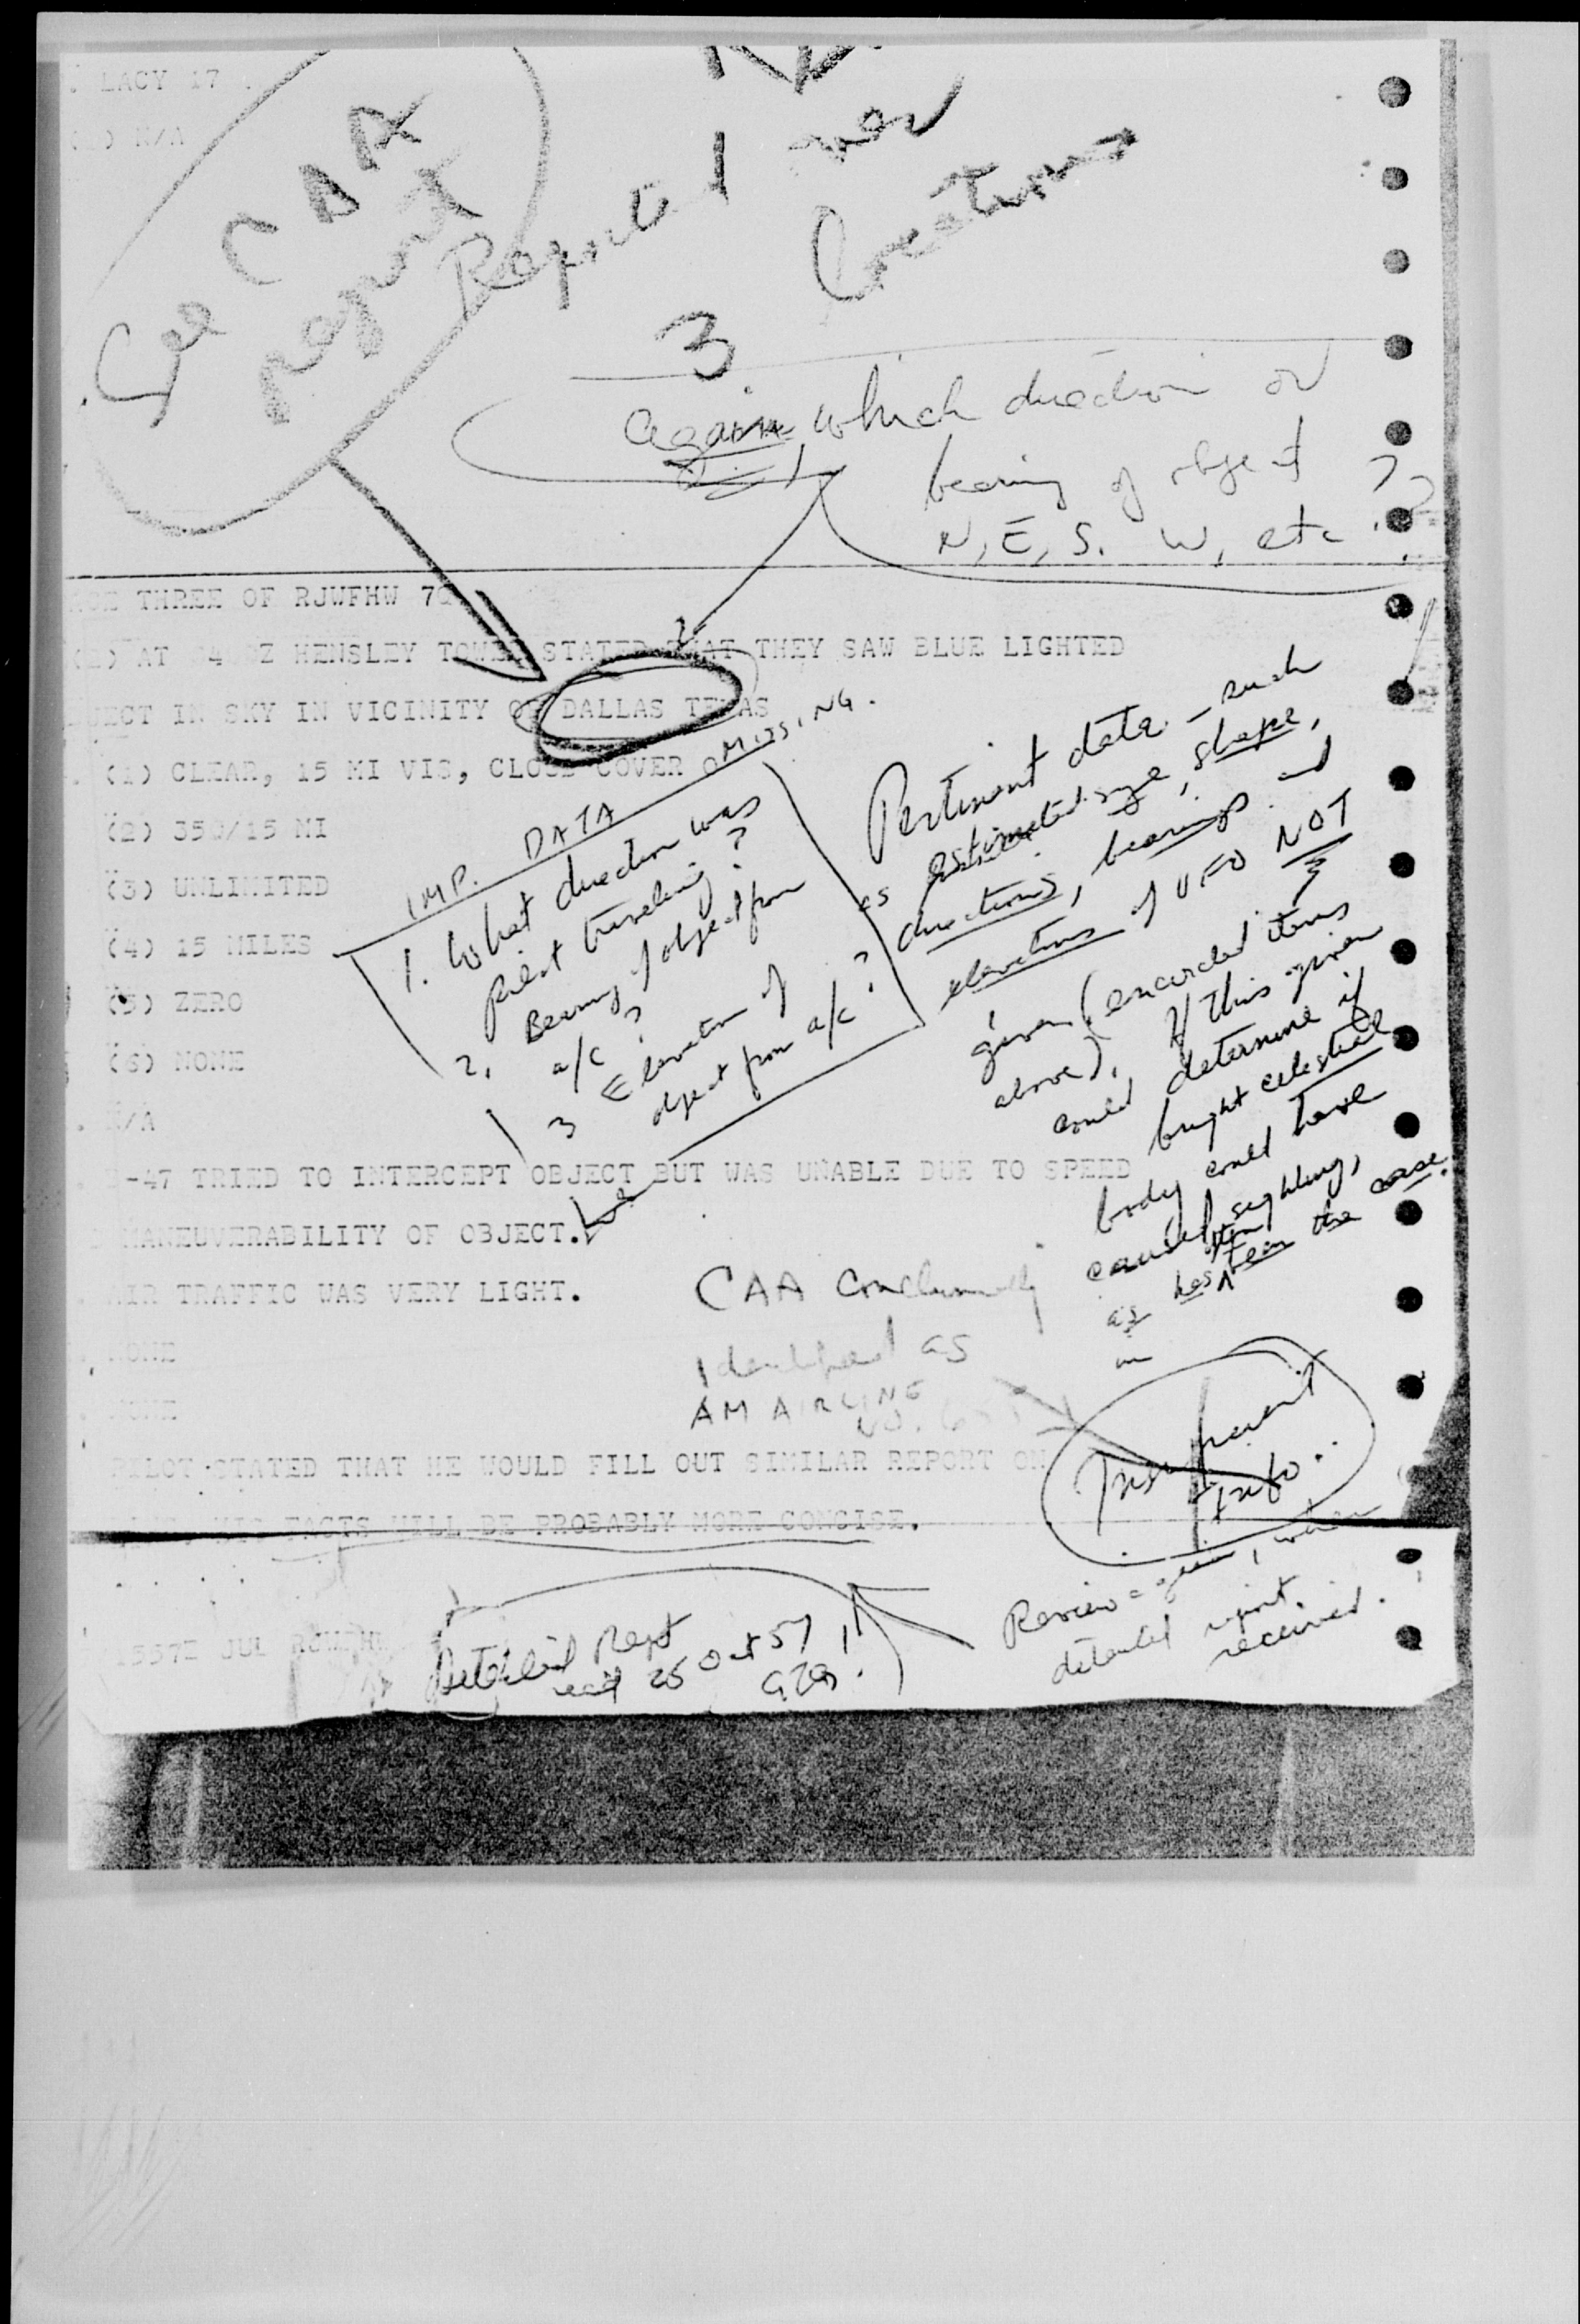 LACY 17
N/A
See CAA
report
Report
over
Locations
3
Again, which direction or
bearing of object
N, E, S. W, etc ??
THREE OF RJWFHW
AT Z HENSLEY TOWER STATED THAT THEY SAW BLUE LIGHTED
IN SKY IN VICINITY OF DALLAS TEXAS
(1) CLEAR, 15 MI VIS, CLOUD COVER
(2) 350/15 MI
(3) UNLIMITED
(4) 15 MILES
(5) ZERO
(6) NONE
N/A
IMP. DATA MISSING.
1. What direction was
pilot traveling?
2. Bearing of object from
a/c?
3 Elevation of
object from a/c?
Pertinent data - such
as estimated size, shape,
directions, bearings and
elevations of UFO NOT
given (encircled items
above). If this given
could determine if
bright celestial
body could have
caused sighting,
as has been the case.
-47 TRIED TO INTERCEPT OBJECT BUT WAS UNABLE DUE TO SPEED
MANEUVERABILITY OF OBJECT.
AIR TRAFFIC WAS VERY LIGHT.
NONE
NONE
CAA conclusively
identified as
AM AIRLINE
NO.
PILOT STATED THAT HE WOULD FILL OUT SIMILAR REPORT ON
HIS FACTS WILL BE PROBABLY MORE CONCISE.
Insufficient
Info.
Review again, when
detailed report
received.
JUL
Detailed Rept
recd 25 Oct 57